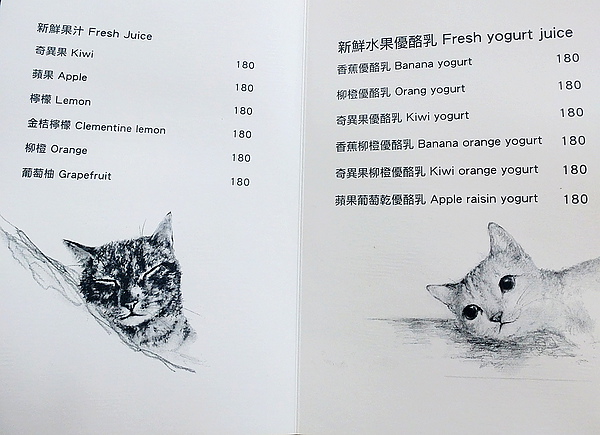 新鮮果汁 Fresh Juice
奇異果 Kiwi 180
蘋果 Apple 180
檸檬 Lemon 180
金桔檸檬 Clementine lemon 180
柳橙 Orange 180
葡萄柚 Grapefruit 180
新鮮水果優酪乳 Fresh yogurt juice
香蕉優酪乳 Banana yogurt 180
柳橙優酪乳 Orang yogurt 180
奇異果優酪乳 Kiwi yogurt 180
香蕉柳橙優酪乳 Banana orange yogurt 180
奇異果柳橙優酪乳 Kiwi orange yogurt 180
蘋果葡萄乾優酪乳 Apple raisin yogurt 180